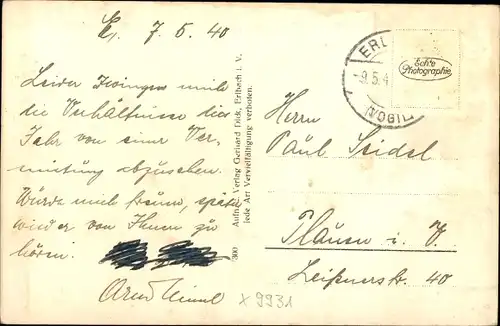 E. 7. 5. 40
Leider zwingen mich
die Verhältnisse dies
Jahr von einer Ver-
mietung abzusehen.
Würde mich freuen, später
wieder von Ihnen zu
hören.
X 9931
300 Aufn. u. Verlag Gerhard Fick, Erlbach i. V.
jede Art Vervielfältigung verboten.
ERL
9.5.4
(VOGTL)
Echte
Photographie
Herrn
Paul Seidel
Plauen i. V.
Leißnerstr. 40